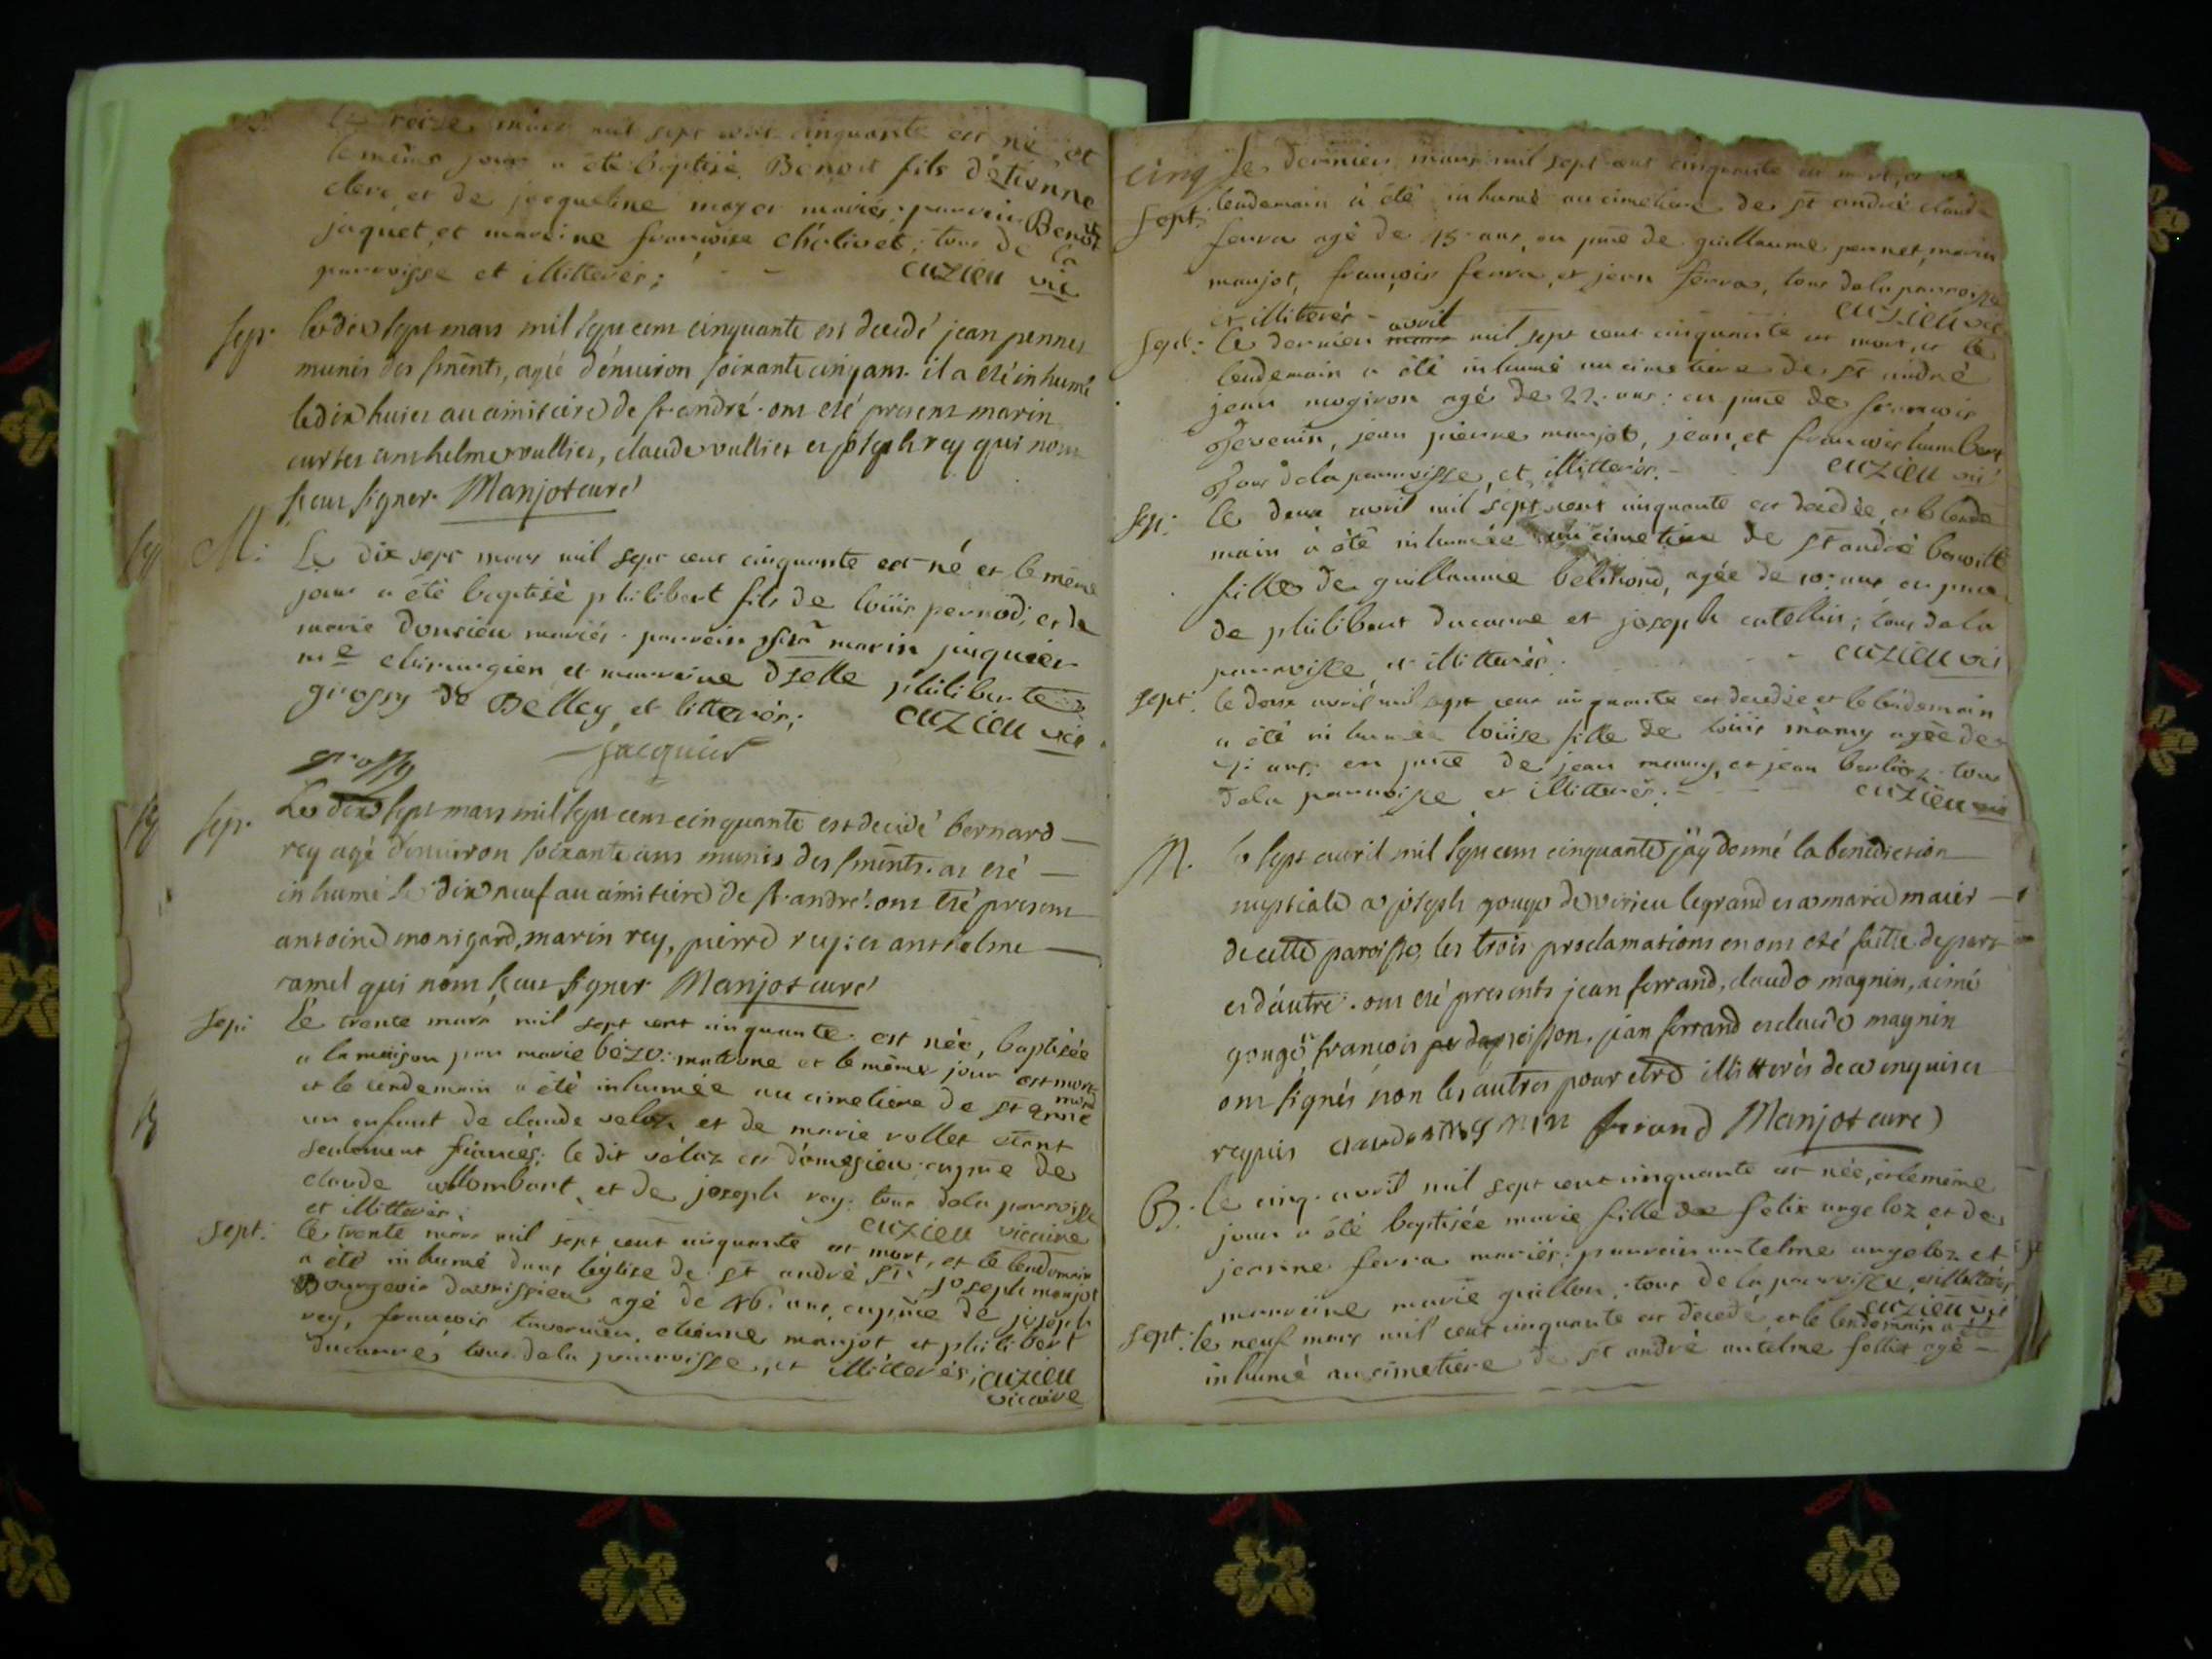 mars mil sept cent cinquante est né et
le même jour a été baptisé Benoit fils d'étienne
clerc et de jacqueline mayer mariés; parrein Benoit
jaquet, et mareine françoise chólivet; tous de la
parroisse et illitterés; cuzieu vic
sep. le dix sept mars mil sept cens cinquante est decedé jean pennet
munis des smēnts, agé d'enuiron soixante cinq ans. il a eté inhumé
le dix huict au cimitaire de st. andré. ont eté presens marin
anthelme vullier, claude vullier et joseph rey qui nont
sceus signer. Manjot curé
M: Le dix sept mars mil sept cent cinquante est né et le même
jour a été baptisé philibert fils de loüis pernod, et de
marie donsieu mariés. parrein sr. marin jaquier
me chirurgien et marreine dselle philiberte
grossy de Belley et litterés; cuzieu vic
grossy jacquier
sep. Le dix sept mars mil sept cens cinquante est decedé bernard
rey agé d'enuiron soixante ans munis des smēnts. at eté
inhumé le dix neuf au cimitiere de st. andré. ont eté presens
antoine monigard, marin rey, pierre rey; et anthelme
ramel qui nont sceus signer Manjot curé
sep: Le trente mars mil sept cent cinquante est née, baptisée
a la maison par marie bézo: matrone et le même jour est mort
et le lendemain a été inhumée au cimetiere de st andré
un enfant de claude veloz et de marie rollet étant
seulement fiancés; le dit véluz est d'amesieu en pnce de
claude allombert et de joseph rey tous dela parroisse
et illitterés; cuzieu vicaire
sept: Le trente mars mil sept cent cinquante est mort, et le lendemain
a été inhumé dans l'église de st andré sr. joseph manjot
Bourgeois agé de 46. ans, en pnce de joseph
rey, françois tavernier, etienne manjot et philibert
ducarre, tous dela parroisse, et illitterés; cuzieu
vicaire
cinq Le dernier mars mil sept cent cinquante est mort, et le
sept: lendemain a été inhumé au cimetiere de st andré claude
ferra agé de 45 ans, en pnce de guillaume pennet, marin
manjot, françois ferra, et jean ferra, tous dela parroisse
et illiterés - cuzieu vic
sept: Le dernier mars avril mil sept cent cinquante est mort, et le
lendemain a été inhumé au cimetiere de st andré
jean mogiron agé de 22. ans: en pnce de françois
Tevenin, jean pierre manjot, jean, et françois humbert
Tous dela parroisse, et illitterés. - cuzieu vic
sep: Le deux avril mil sept cent cinquante est decedée, et le lende
main a été inhumée au cimetiere de st andré benoitte
fille de guillaume belmond, agée de 10. ans en pnce
de philibert ducarre et joseph catellin; tous dela
parroisse et illitterés. cuzieu vic
sept: Le deux avril mil sept cent cinquante est decedée et le lendemain
a été inhumée loüise fille de loüis mamy agée de
ans: en pnce de jean mamy, et jean berlioz tous
dela parroisse et illitterés. cuzieu vic
M. le sept auril mil sept cens cinquante j'ay donné la benediction
nuptiale a joseph gouge de virieu le grand et a marie maier
de cette paroisse, les trois proclamations en ont eté faitte de part
et d'autre. ont eté presents jean ferrand, claude magnin, aimé
gouge, françois poisson. jean ferrand et claude magnin
ont signés non les autres pour etre illitterés de ce enquis et
requis claude magnin ferrand Manjot curé
B. Le cinq avril mil sept cent cinquante est née, et le même
jour a été baptisée marie fille de felix angeloz et de
jeanne ferra mariés; parrein antelme angeloz et
marreine marie guillon; tous de la parroisse, et illitterés
cuzieu vic
sept: Le neuf mars mil cent cinquante est decedé, et le lendemain a été
inhumé au cimetiere de st andré antelme follix agé